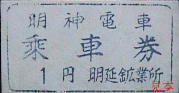 明神電車
乗車券
1円 明延鉱業所
見本